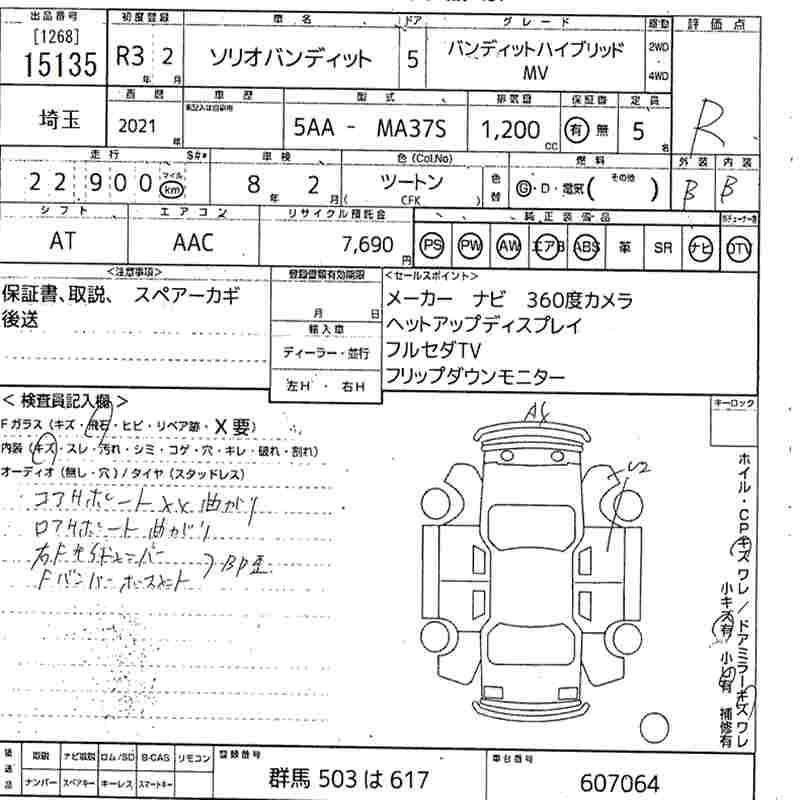 出品番号 初度登録 車名 ドア グレード 駆動 評価点
[1268] 15135 R3 年 2 月 ソリオバンディット 5 バンディットハイブリッド MV 2WD・4WD R
埼玉 西暦 車歴 型式 排気量 保証書 定員
2021 年 5AA - MA37S 1,200 CC 有 無 5 名
走行 S#* 車検 色(Col,No) 燃料 外装 内装
22 900 マイル km 8 年 2 月 ツートン ( CFK ) 色替 G・D・電気 ( その他 ) B B
シフト エアコン リサイクル預託金 純正装備品
AT AAC 7,690 円 PS PW AW エアB ABS 革 SR ナビ TV
<注意事項> 登録書類有効期限 <セールスポイント>
保証書、取説、 スペアーカギ
後送
月 日
輸入車
ディーラー・並行
左H ・ 右H
メーカー ナビ 360度カメラ
ヘットアップディスプレイ
フルセダTV
フリップダウンモニター
<検査員記入欄> キーロック
Fガラス (キズ・飛石・ヒビ・リペア跡・X要)
内装 (キズ・スレ・汚れ・シミ・コゲ・穴・キレ・破れ・割れ)
オーディオ (無し・穴) / タイヤ (スタッドレス)
コアサポート XX 曲がり
ロアサポート 曲がり
右Fサイドメンバー
Fバンパーホースメント
ホイル・CPキズワレ/ドアミラーキズワレ
小キズ有 小凹有 補修有
後送品 取説 ナビ取説 ロム/SD B-CAS リモコン 登録番号 車台番号
ナンバー スペアキー キーレス スマートキー 群馬 503 は 617 607064